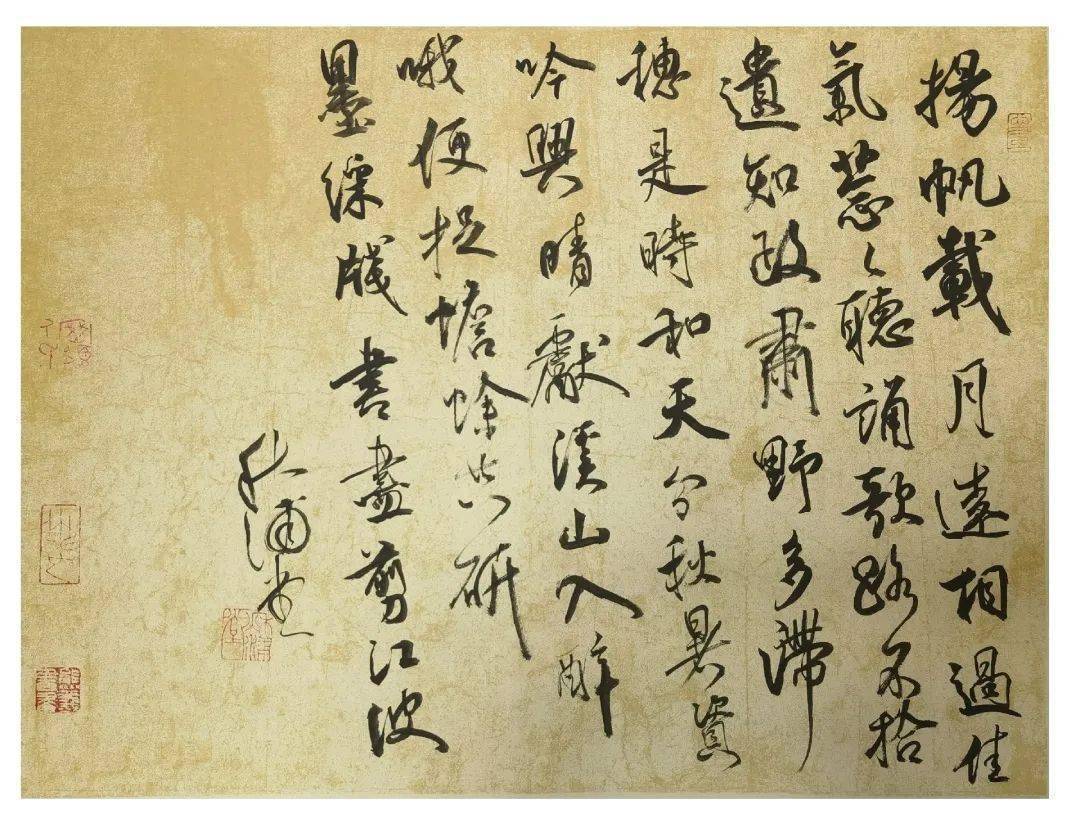 揚帆載月遠相過佳
氣葱々聽誦歌路不拾
遺知政肅野多滯
穗是時和天分秋暑資
吟興晴獻溪山入醉
哦便捉蟾蜍共研
墨綵牋書盡剪江波
秋浦